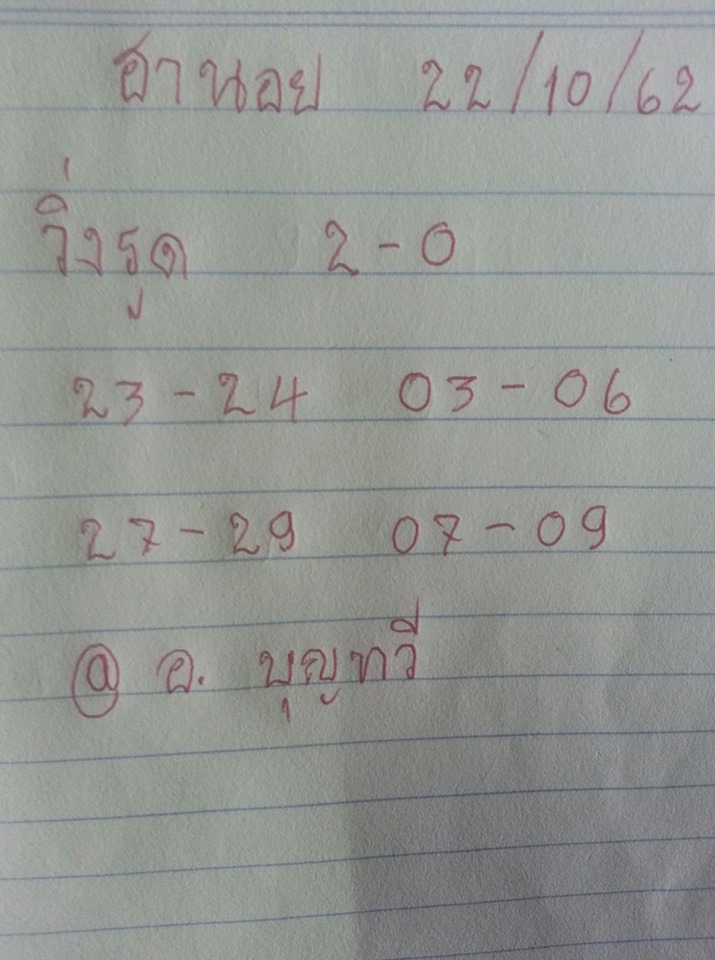 ฮานอย 22/10/62
วิ่งรูด 2-0
23-24 03-06
27-29 07-09
@ อ. บุญทวี